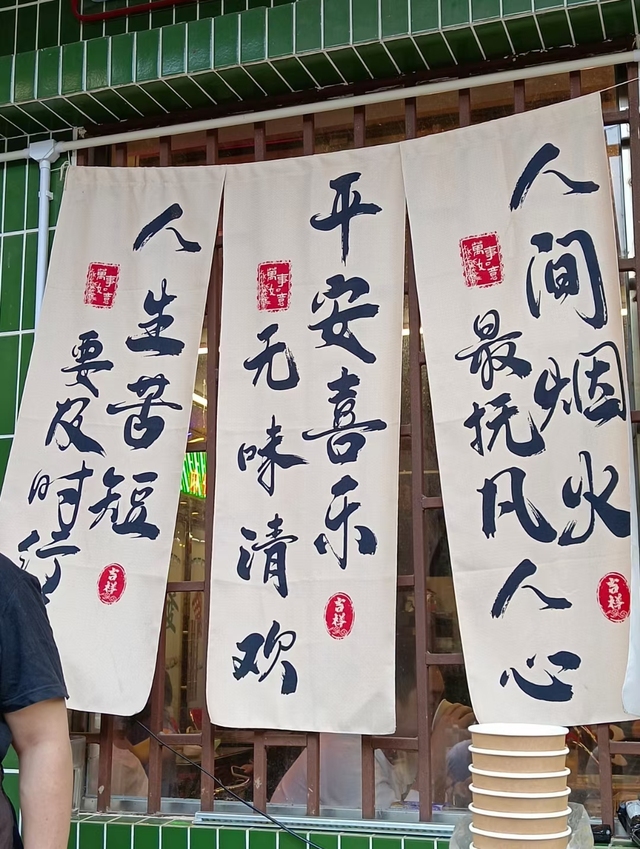 人间烟火
吉祥
最抚凡人心
平安喜乐
吉祥
无味清欢
人生苦短
吉祥
要及时行